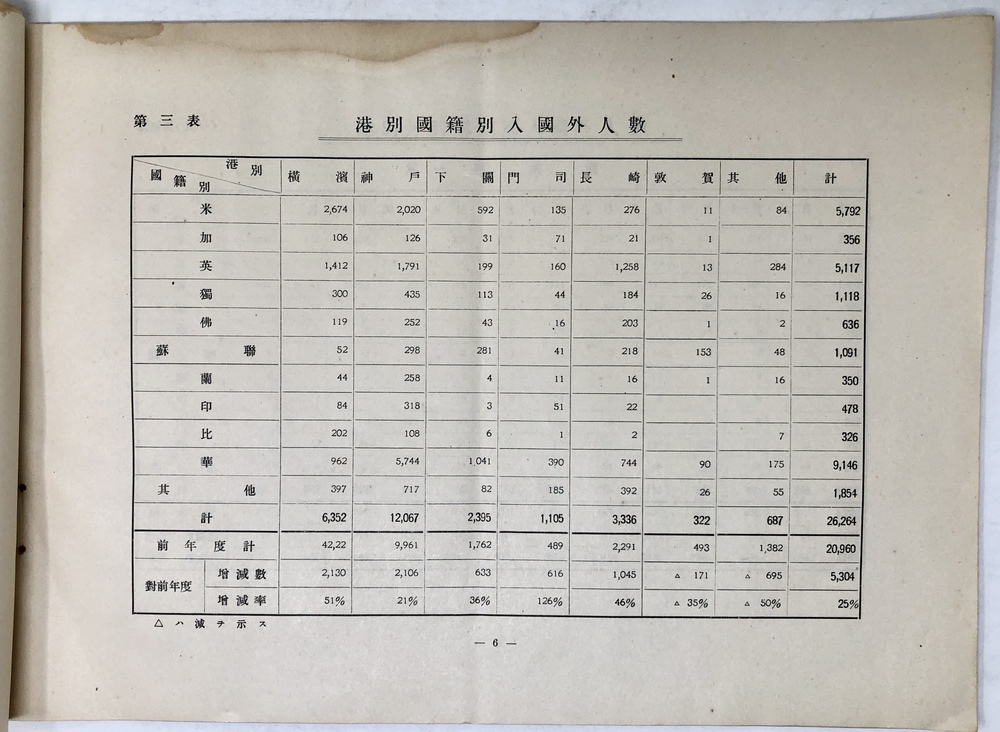 第三表
港別國籍別入國外人數
港別 國籍別 橫濱 神戶 下關 門司 長崎 敦賀 其他 計
米 2,674 2,020 592 135 276 11 84 5,792
加 106 126 31 71 21 1 356
英 1,412 1,791 199 160 1,258 13 284 5,117
獨 300 435 113 44 184 26 16 1,118
佛 119 252 43 16 203 1 2 636
蘇聯 52 298 281 41 218 153 48 1,091
蘭 44 258 4 11 16 1 16 350
印 84 318 3 51 22 478
比 202 108 6 1 2 7 326
華 962 5,744 1,041 390 744 90 175 9,146
其他 397 717 82 185 392 26 55 1,854
計 6,352 12,067 2,395 1,105 3,336 322 687 26,264
前年度計 42,22 9,961 1,762 489 2,291 493 1,382 20,960
對前年度 增減數 2,130 2,106 633 616 1,045 △ 171 △ 695 5,304
增減率 51% 21% 36% 126% 46% △ 35% △ 50% 25%
△ハ減ヲ示ス
— 6 —